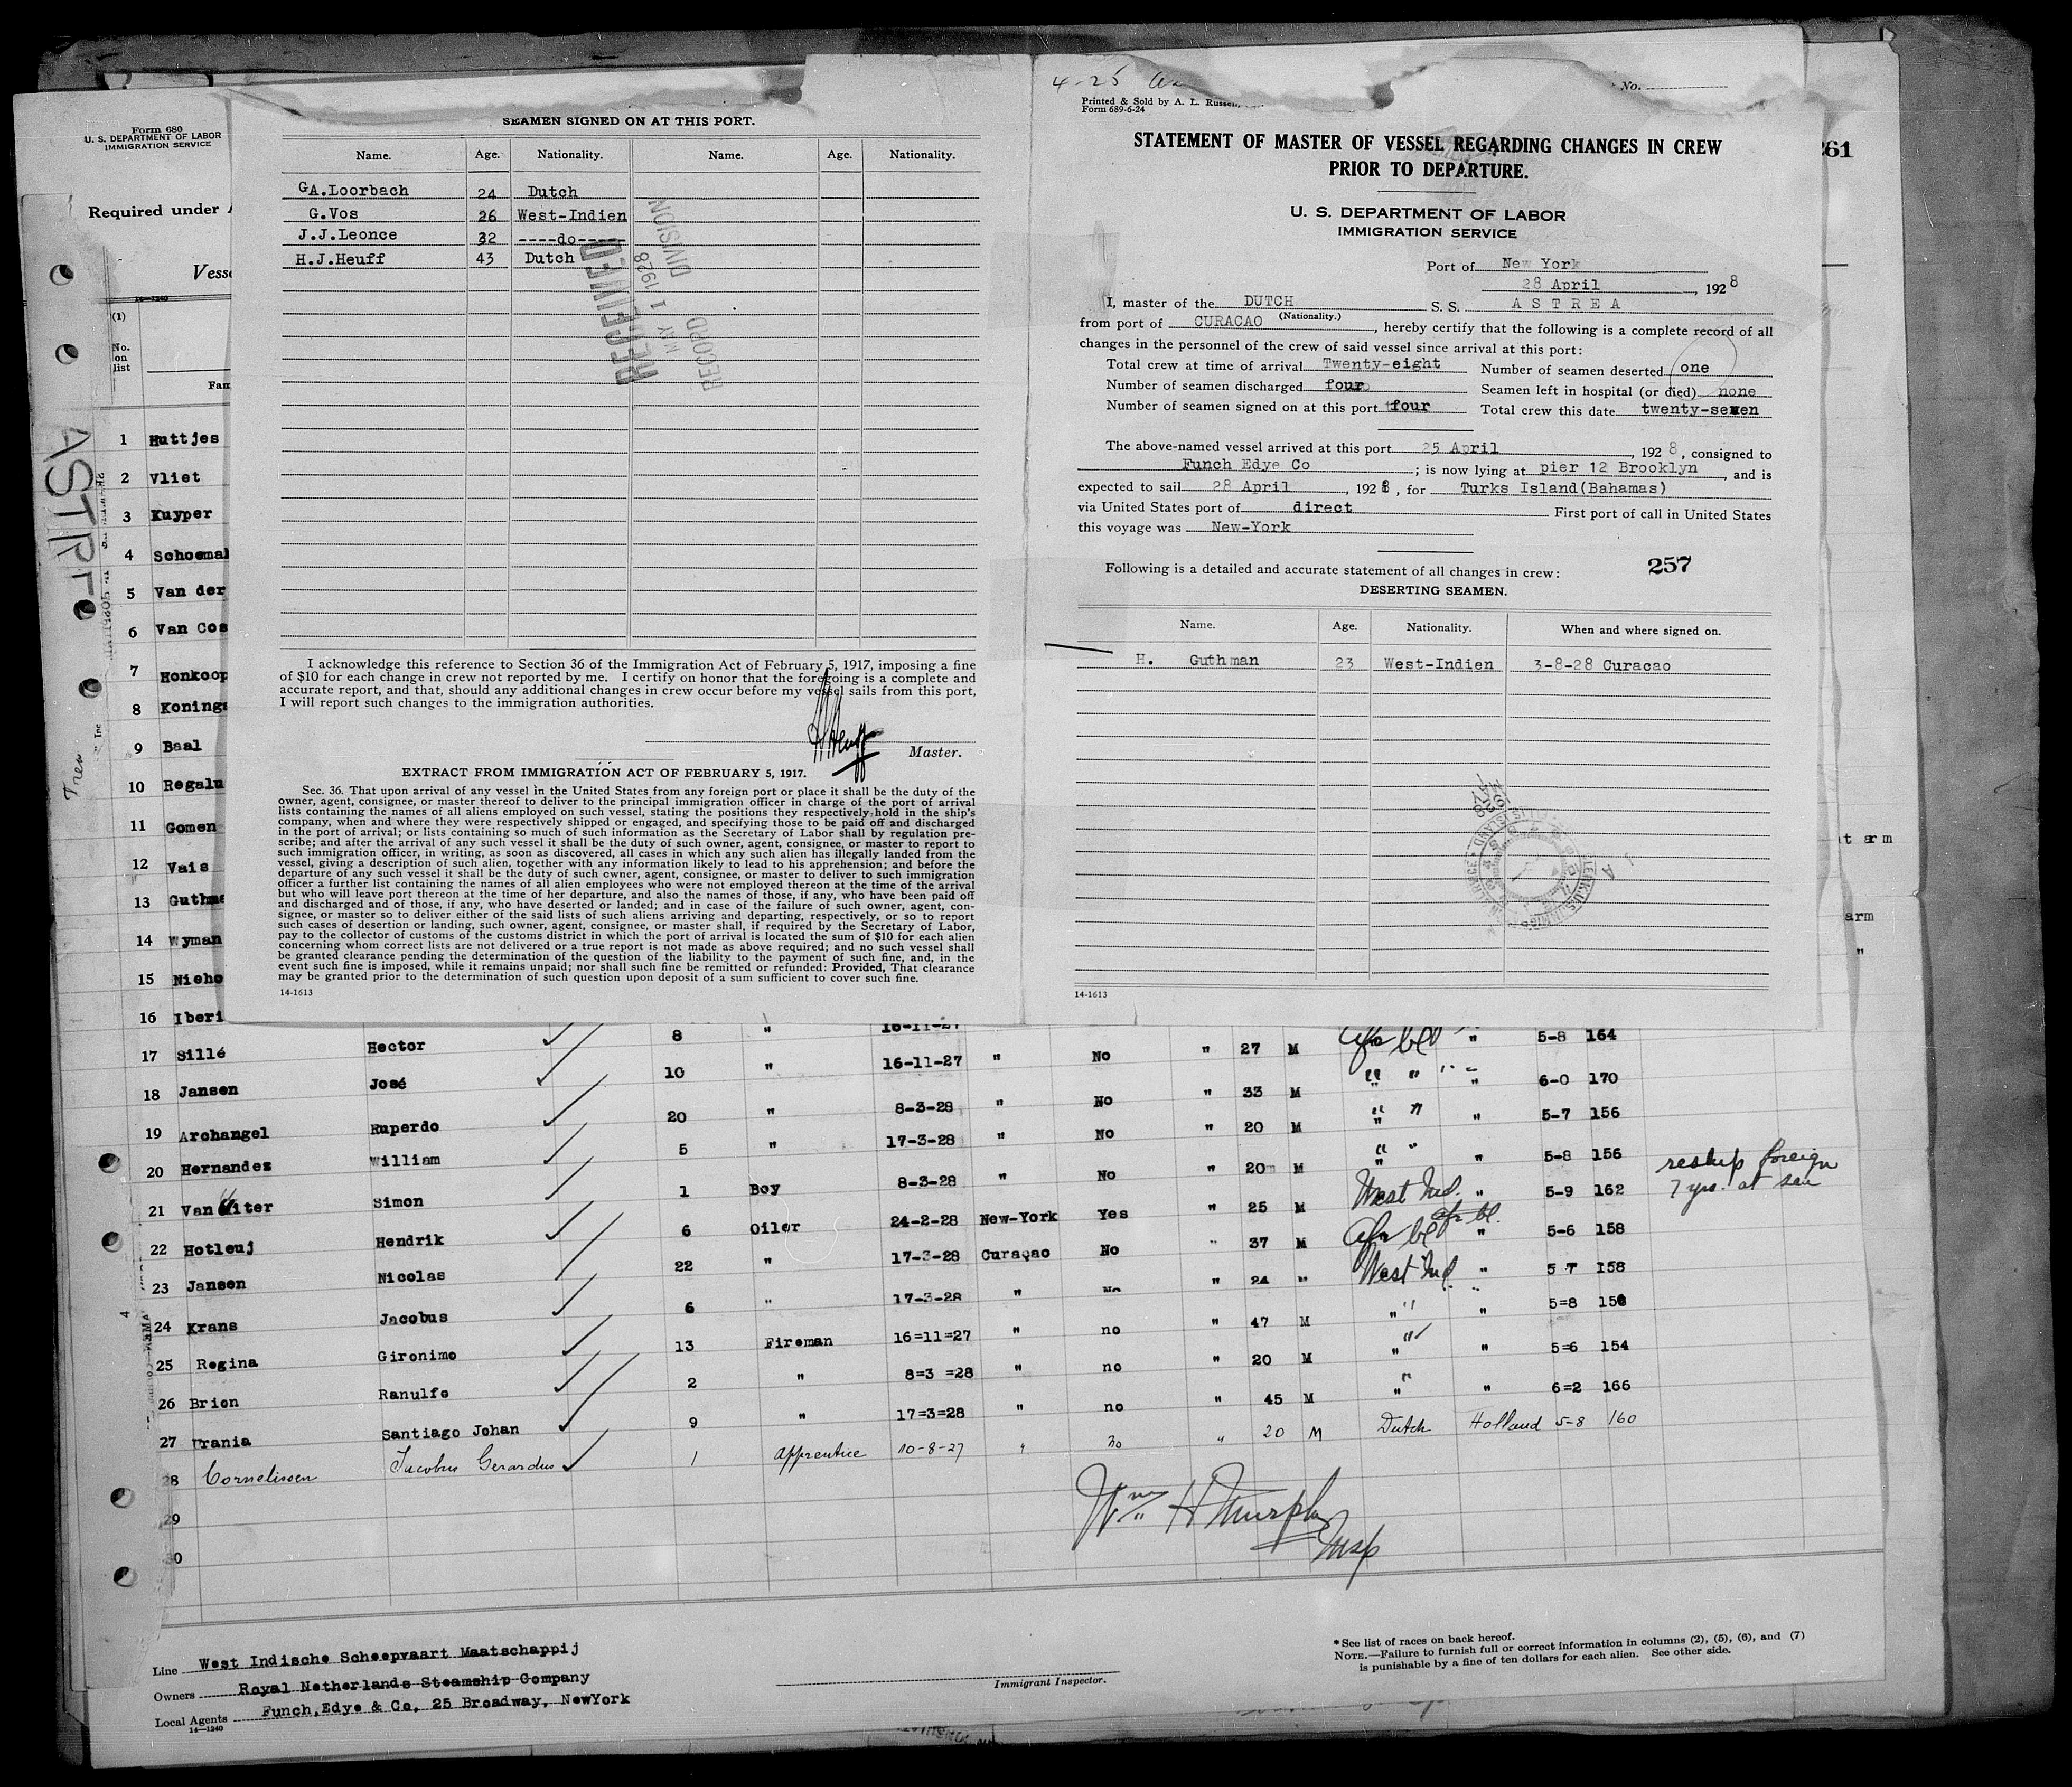 Form 680
U. S. DEPARTMENT OF LABOR
IMMIGRATION SERVICE
Required under
ASTRE
(1)
No.
on
list
1 Huttjes
2 Vliet
3 Kuyper
4 Schoemak
5 Van der
6 Van Cos
7 Honkoop
8 Konings
9 Baal
10 Regalu
11 Gomen
12 Vais
13 Guthma
14 Wyman
15 Nieho
16 Iberi
SEAMEN SIGNED ON AT THIS PORT.
Name. Age. Nationality. Name. Age. Nationality.
GA.Loorbach 24 Dutch
G.Vos 26 West-Indien
J.J.Leonce 32 ----do----
H.J.Heuff 43 Dutch
RECEIVED
MAY 1 1928
RECORD DIVISION
I acknowledge this reference to Section 36 of the Immigration Act of February 5, 1917, imposing a fine
of $10 for each change in crew not reported by me. I certify on honor that the foregoing is a complete and
accurate report, and that, should any additional changes in crew occur before my vessel sails from this port,
I will report such changes to the immigration authorities.
HJHeuff
Master.
EXTRACT FROM IMMIGRATION ACT OF FEBRUARY 5, 1917.
Sec. 36. That upon arrival of any vessel in the United States from any foreign port or place it shall be the duty of the
owner, agent, consignee, or master thereof to deliver to the principal immigration officer in charge of the port of arrival
lists containing the names of all aliens employed on such vessel, stating the positions they respectively hold in the ship's
company, when and where they were respectively shipped or engaged, and specifying those to be paid off and discharged
in the port of arrival; or lists containing so much of such information as the Secretary of Labor shall by regulation pre-
scribe; and after the arrival of any such vessel it shall be the duty of such owner, agent, consignee, or master to report to
such immigration officer, in writing, as soon as discovered, all cases in which any such alien has illegally landed from the
vessel, giving a description of such alien, together with any information likely to lead to his apprehension; and before the
departure of any such vessel it shall be the duty of such owner, agent, consignee, or master to deliver to such immigration
officer a further list containing the names of all alien employees who were not employed thereon at the time of the arrival
but who will leave port thereon at the time of her departure, and also the names of those, if any, who have been paid off
and discharged and of those, if any, who have deserted or landed; and in case of the failure of such owner, agent, con-
signee, or master so to deliver either of the said lists of such aliens arriving and departing, respectively, or so to report
such cases of desertion or landing, such owner, agent, consignee, or master shall, if required by the Secretary of Labor,
pay to the collector of customs of the customs district in which the port of arrival is located the sum of $10 for each alien
concerning whom correct lists are not delivered or a true report is not made as above required; and no such vessel shall
be granted clearance pending the determination of the question of the liability to the payment of such fine, and, in the
event such fine is imposed, while it remains unpaid; nor shall such fine be remitted or refunded: Provided, That clearance
may be granted prior to the determination of such question upon deposit of a sum sufficient to cover such fine.
14-1613
4-25
No.
Printed & Sold by A. L. Russell,
Form 689-6-24
STATEMENT OF MASTER OF VESSEL REGARDING CHANGES IN CREW
PRIOR TO DEPARTURE.
U. S. DEPARTMENT OF LABOR
IMMIGRATION SERVICE
Port of New York
28 April, 1928
I, master of the DUTCH S. S. ASTREA
(Nationality.)
from port of CURACAO, hereby certify that the following is a complete record of all
changes in the personnel of the crew of said vessel since arrival at this port:
Total crew at time of arrival Twenty-eight Number of seamen deserted one
Number of seamen discharged four Seamen left in hospital (or died) none
Number of seamen signed on at this port four Total crew this date twenty-seven
The above-named vessel arrived at this port 25 April, 1928, consigned to
Funch Edye Co; is now lying at pier 12 Brooklyn, and is
expected to sail 28 April, 1928, for Turks Island(Bahamas)
via United States port of direct First port of call in United States
this voyage was New-York
Following is a detailed and accurate statement of all changes in crew: 257
DESERTING SEAMEN.
Name. Age. Nationality. When and where signed on.
H. Guthman 23 West-Indien 3-8-28 Curacao
14-1613
261
arm
arm
"
17 Sillé Hector 8 " 16-11-27 " No " 27 M afr bl " 5-8 164
18 Jansen José 10 " 16-11-27 " No " 33 M " " " 6-0 170
19 Archangel Ruperdo 20 " 8-3-28 " No " 20 M " " " 5-7 156
20 Hernandez William 5 " 17-3-28 " No " 20 M " " " 5-8 156
21 Van Uiter Simon 1 Boy 8-3-28 " Yes " 25 M West Ind. " 5-9 162 reship foreign 7 yrs. at sea
22 Hotleuj Hendrik 6 Oiler 24-2-28 New-York No " 37 M afr bl afr bl. " 5-6 158
23 Jansen Nicolas 22 " 17-3-28 Curaçao No " 24 " West Ind. " 5 7 158
24 Krans Jacobus 6 " 17-3-28 " no " 47 M " " 5=8 156
25 Regina Gironimo 13 Fireman 16=11=27 " no " 20 M " " 5=6 154
26 Brion Ranulfo 2 " 8=3 =28 " no " 45 M " " 6=2 166
27 Urania Santiago Johan 9 " 17=3=28 "
28 Cornelissen Jacobus Gerardus 1 Apprentice 10-8-27 " no " 20 M Dutch Holland 5-8 160
29
30
Wm. H Murphy
Insp
Line West Indische Scheepvaart Maatschappij
Owners Royal Netherlands Steamship Company
Local Agents Funch,Edye & Co, 25 Broadway, NewYork
14-1240
Immigrant Inspector.
* See list of races on back hereof.
NOTE.—Failure to furnish full or correct information in columns (2), (5), (6), and (7)
is punishable by a fine of ten dollars for each alien. See other side.